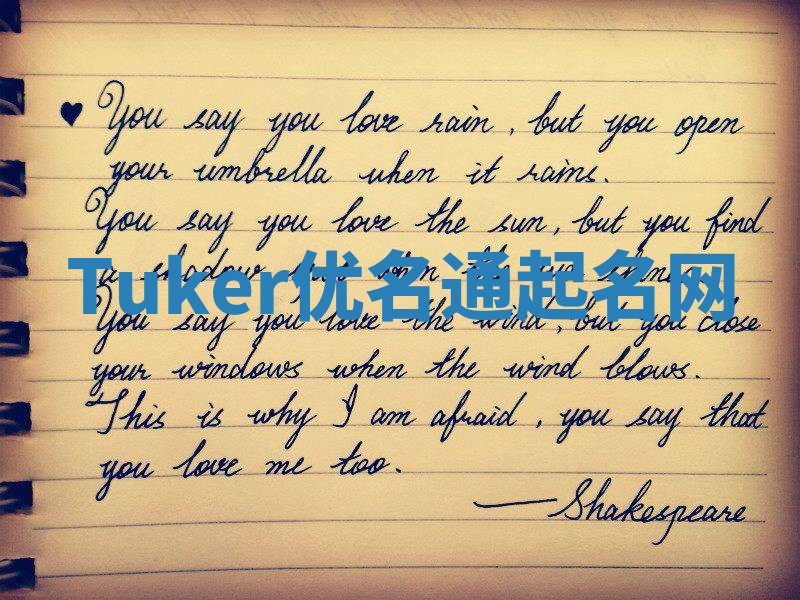 ♥ You say you love rain, but you open
your umbrella when it rains.
You say you love the sun, but you find
a shadow when the sun shines.
Tuker优名通起名网
You say you love the wind, but you close
your windows when the wind blows.
This is why I am afraid, you say that
you love me too.
—Shakespeare